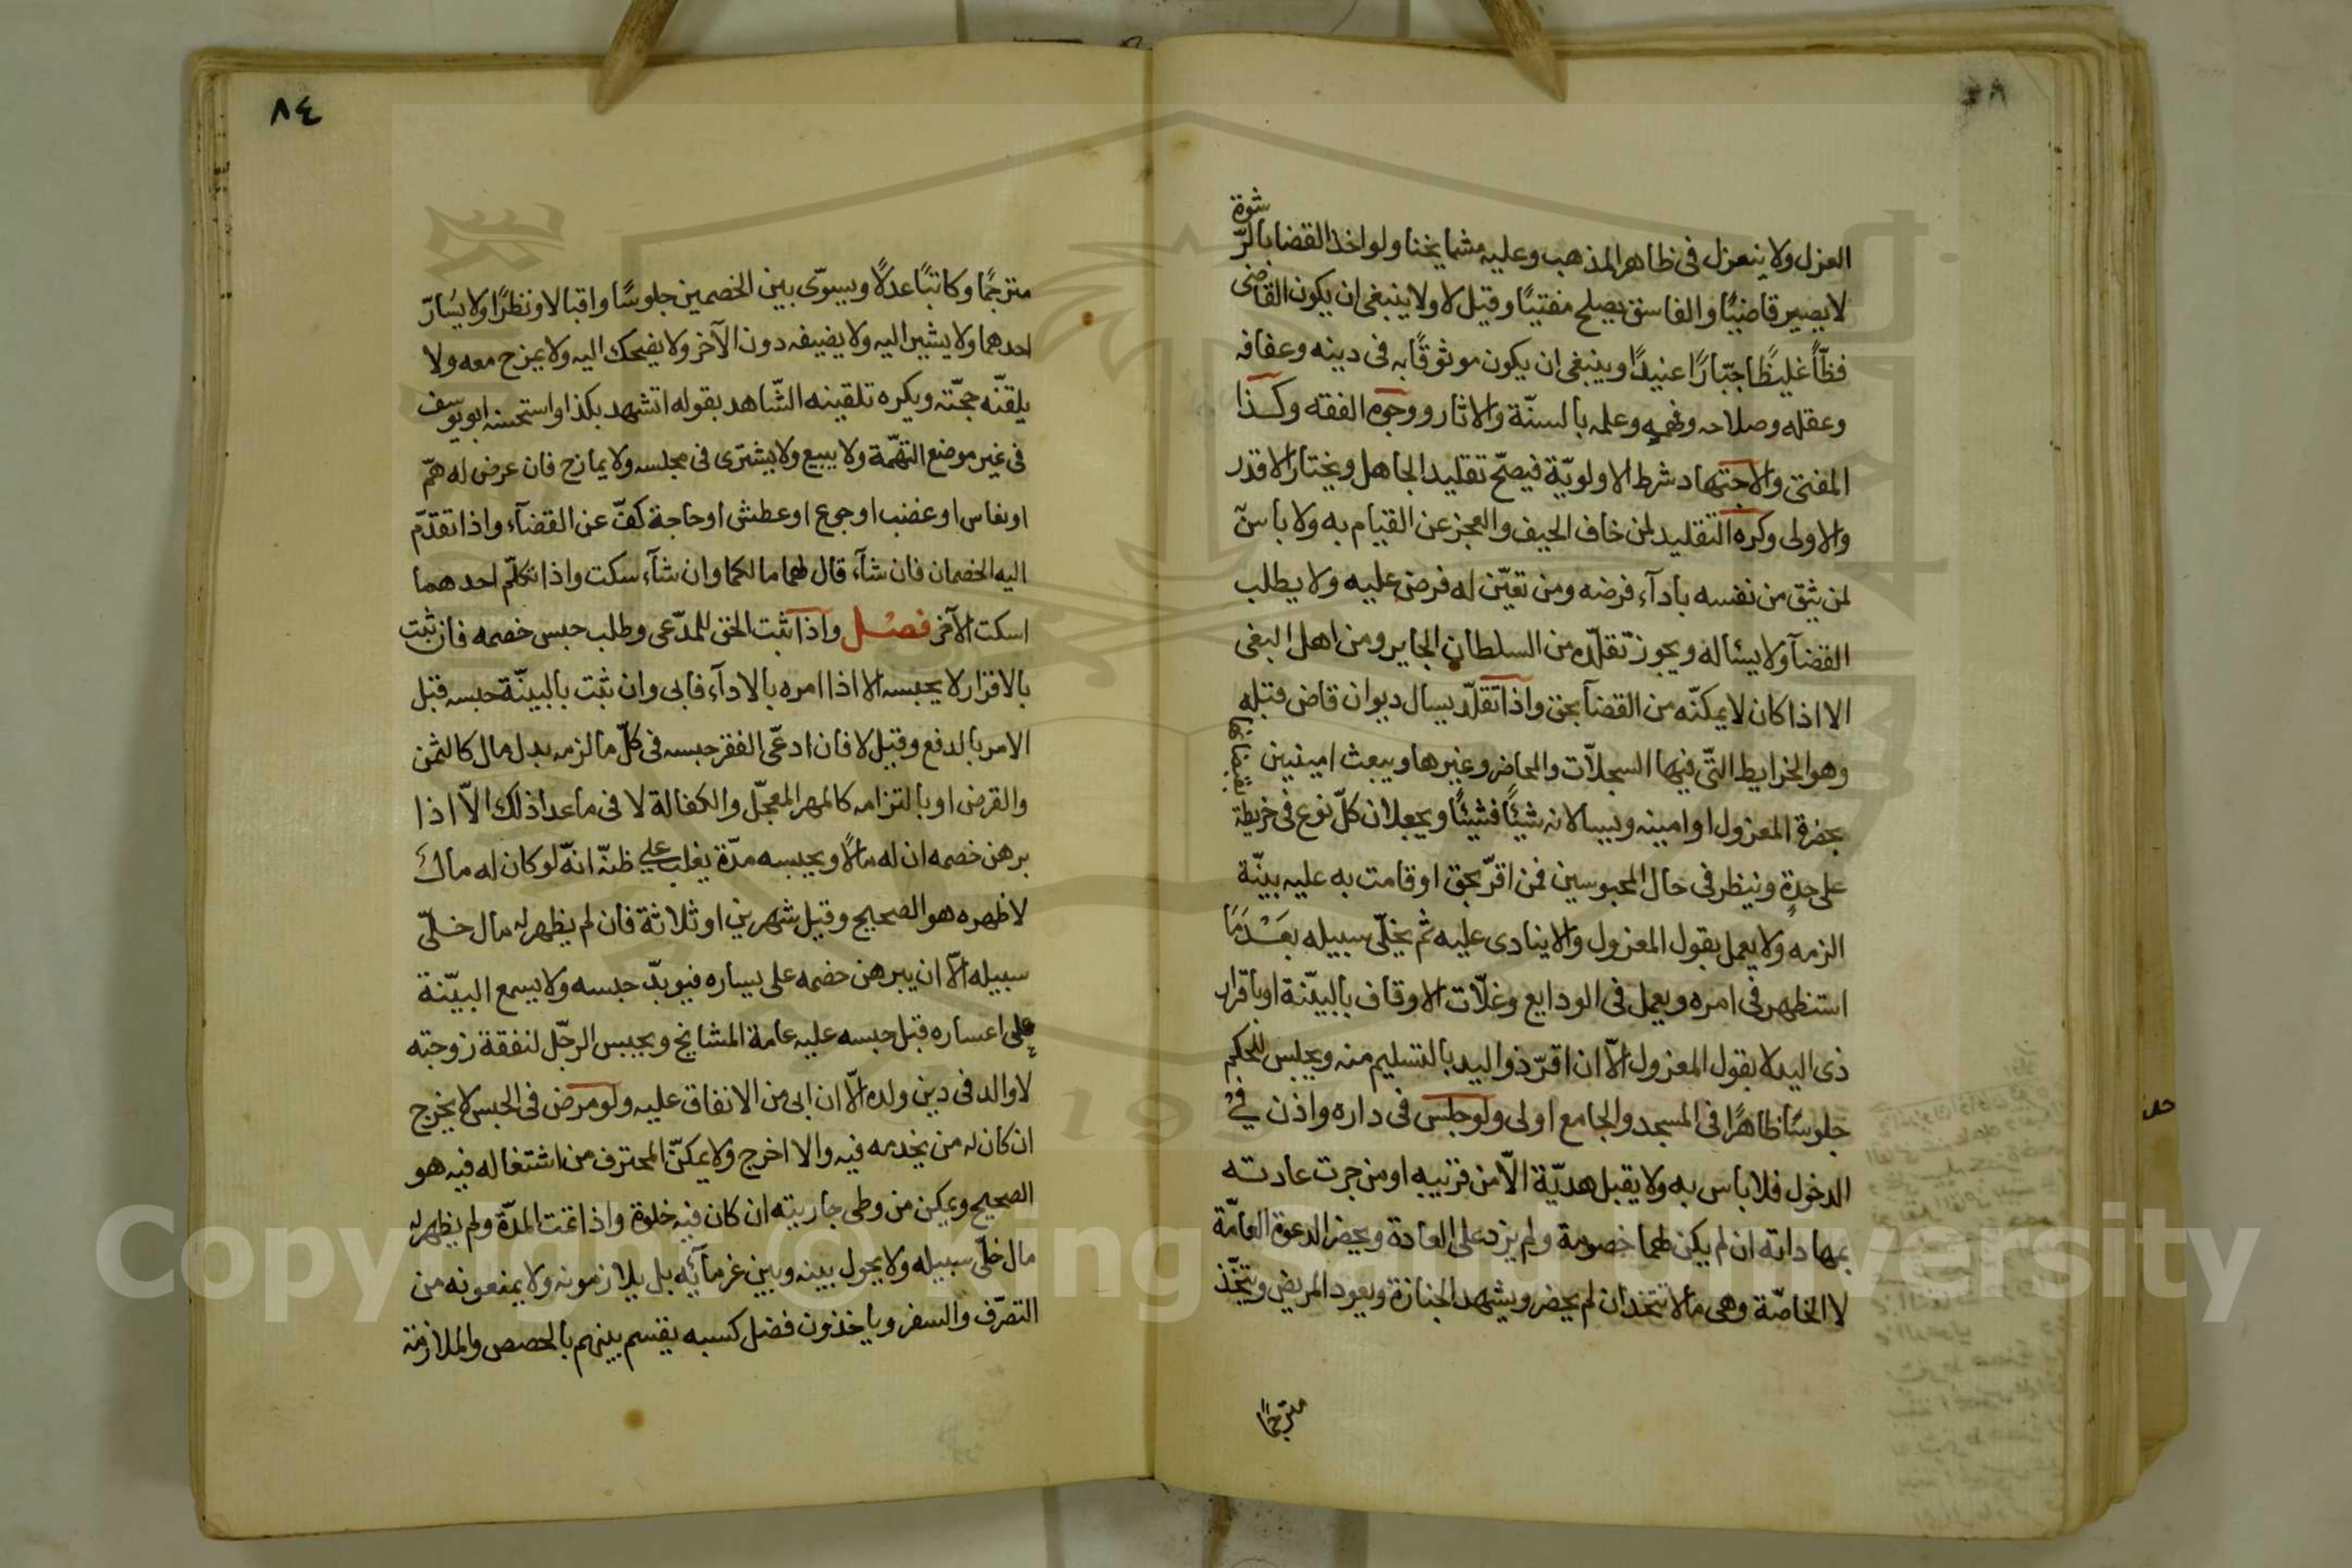 العزل ولا ينعزل فى ظاهر المذهب وعليه مشايخنا ولو اخذ القضا بالرّشوة
لا يصير قاضيًا والفاسق يصلح مفتيًا وقيل لا ولا ينبغى ان يكون القاضى
فظّاً غليظًا جبّارًا عنيدًا وينبغى ان يكون موثوقًا به فى دينه وعفافه
وعقله وصلاحه وفهمه وعلمه بالسنّة والاثار ووجوه الفقه وكذا
المفتى والاجتهاد شرط الاولويّة فيصحّ تقليد الجاهل ويختار الاقدر
والاولى وكره التقليد لمن خاف الحيف والعجز عن القيام به ولا باس
لمن يثق من نفسه بادآء فرضه ومن تعيّن له فرض عليه ولا يطلب
القضآ ولا يسأله ويجوز تقلّده من السلطان الجاير ومن اهل البغى
الا اذا كان لا يمكنّه من القضآ بحق واذا تقلّد يسال ديوان قاض قبله
وهو الخرايط التّى فيها السجلاّت والمحاضر وغيرها ويبعث امينين يقبضانها
بحضرة المعزول او امينه ويسالانه شيئًا فشيئًا ويجعلان كلّ نوع فى خريطة
على حدةٍ وينظر فى حال المحبوسين فمن اقرّ بحق او قامت به عليه بيّنة
الزمه ولا يعمل بقول المعزول والا ينادى عليه ثم يخلّى سبيله بعد ما
استظهر فى امره ويعمل فى الودايع وغلّات الاوقاف بالبيّنة او باقرار
ذى اليد لا بقول المعزول الاّ ان اقرّ ذو اليد بالتسليم منه ويجلس للحكم
جلوسًا ظاهرًا فى المسجد والجامع اولى ولو جلس فى داره واذن فى
الدخول فلا باس به ولا يقبل هديّة الاّ من قريبه او من جرت عادته
بمهاداته ان لم يكن لهما خصومة ولم يزد على العادة ويحضر الدعوة العامّة
لا الخاصّة وهى ما لا تتخذ ان لم يحضر ويشهد الجنازة ويعود المريض ويتّخذ
مترجمًا
٨٤
مترجمًا وكاتبًا عدلاً ويسوّى بين الخصمين جلوسًا واقبالا ونظرًا ولا يسارّ
احدهما ولا يشير اليه ولا يضيفه دون الآخر ولا يضحك اليه ولا يمزح معه ولا
يلقنّه حجّته ويكره تلقينه الشّاهد بقوله اتشهد بكذا واستحسنه ابو يوسف
فى غير موضع التهمّة ولا يبيع ولا يشترى فى مجلسه ولا يمازح فان عرض له همّ
او نعاس او غضب او جوع او عطش او حاجة كفّ عن القضآء واذا تقدّم
اليه الخصمان فان شآء قال لهما مالكما وان شآء سكت واذا تكلّم احدهما
اسكت الآخر فصل واذا ثبت الحق للمدّعى وطلب حبس خصمه فان ثبت
بالاقرار لا يحبسه الا اذا امره بالادآء فابى وان ثبت بالبينّة حبسه قبل
الامر بالدفع وقيل لا فان ادعّى الفقر حبسه فى كلّ ما لزمه بدل مال كالثمن
والقرض او بالتزامه كالمهر المعجّل والكفالة لا فى ما عدا ذلك الاّ اذا
برهن خصمه ان له مالاً ويحبسه مدّة يغلب على ظنّه انّه لو كان له مال
لاظهره هو الصحيح وقيل شهرين او ثلاثة فان لم يظهر له مال خلّى
سبيله الاّ ان يبرهن خصمه على يساره فيوبدّ حبسه ولا يسمع البيّنة
على اعساره قبل حبسه عليه عامة المشايخ ويحبس الرجّل لنفقة زوجته
لا والد فى دين ولده الاّ ان ابى من الانفاق عليه ولو مرض فى الحبس لا يخرج
ان كان له من يخدمه فيه والا اخرج ولا يمكنّ المحترف من اشتغاله فيه هو
الصحيح ويمكن من وطى جاريته ان كان فيه خلوة واذا تمت المدّة ولم يظهر له
مال خلّى سبيله ولا يحول بينه وبين غرمآئه بل يلازمونه ولا يمنعونه من
التصرّف والسفر وياخذون فضل كسبه يقسم بينهم بالحصص والملازمة
Copyright © King Saud University